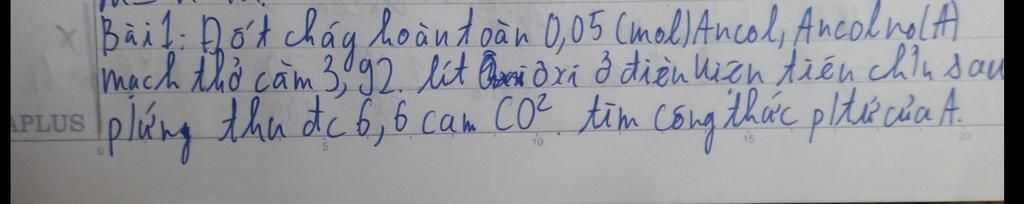 Bài 1: Đốt cháy hoàn toàn 0,05 (mol) Ancol, Ancol no (A)
mạch thở cầm 3,92. lít ôxi ở điền kiện tiến chẩn sau
APLUS p/ứng thu đc 6,6 cam CO². tìm công thức p/tử của A.
0 5 10 15 20